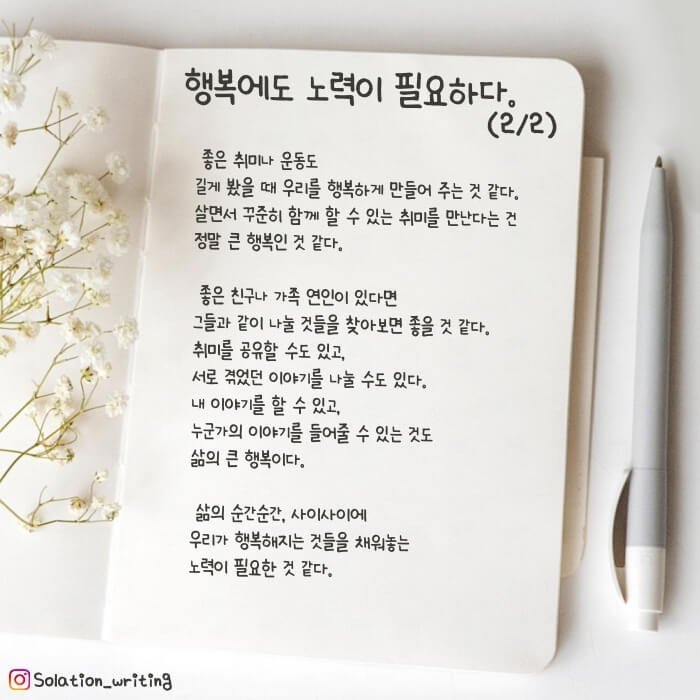 행복에도 노력이 필요하다.
(2/2)
좋은 취미나 운동도
길게 봤을 때 우리를 행복하게 만들어 주는 것 같다.
살면서 꾸준히 함께 할 수 있는 취미를 만난다는 건
정말 큰 행복인 것 같다.
좋은 친구나 가족 연인이 있다면
그들과 같이 나눌 것들을 찾아보면 좋을 것 같다.
취미를 공유할 수도 있고,
서로 겪었던 이야기를 나눌 수도 있다.
내 이야기를 할 수 있고,
누군가의 이야기를 들어줄 수 있는 것도
삶의 큰 행복이다.
삶의 순간순간, 사이사이에
우리가 행복해지는 것들을 채워놓는
노력이 필요한 것 같다.
Solation_writing